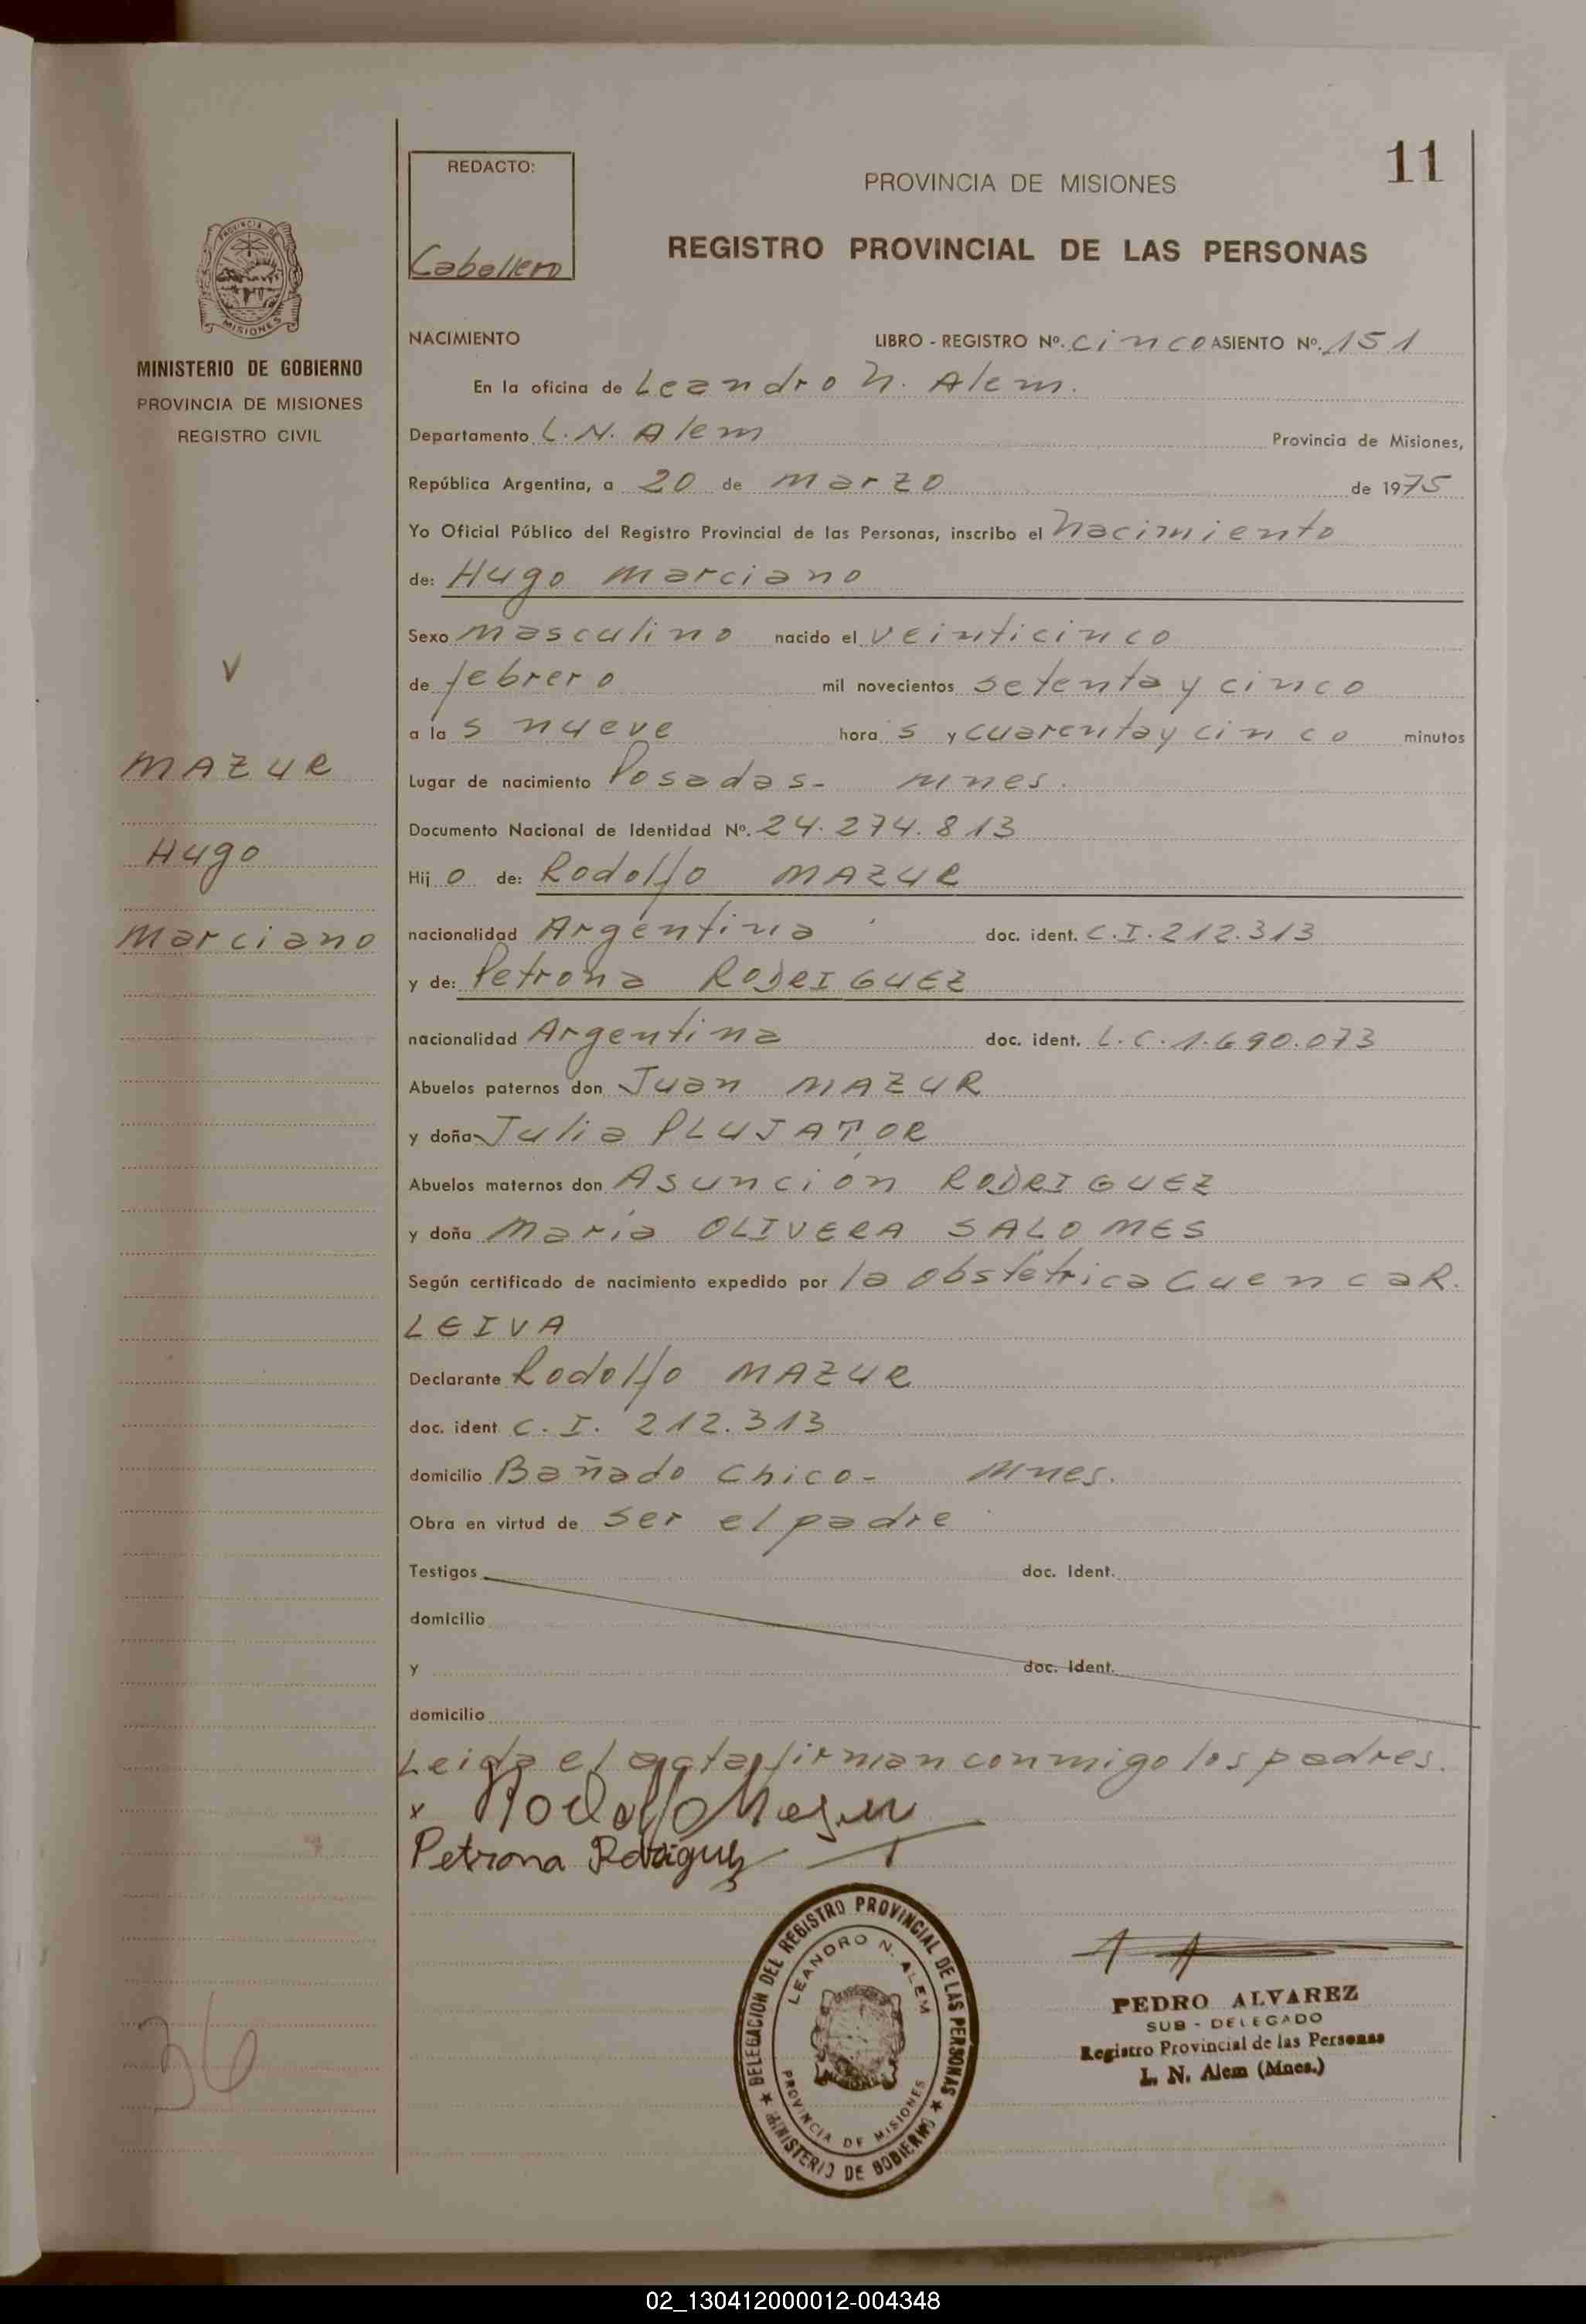 11
REDACTO:
Caballero
PROVINCIA DE MISIONES
REGISTRO PROVINCIAL DE LAS PERSONAS
PROVINCIA DE
MISIONES
MINISTERIO DE GOBIERNO
PROVINCIA DE MISIONES
REGISTRO CIVIL
V
MAZUR
Hugo
Marciano
36
NACIMIENTO LIBRO - REGISTRO Nº. cinco ASIENTO Nº. 151
En la oficina de Leandro N. Alem.
Departamento L. N. Alem Provincia de Misiones,
República Argentina, a 20 de marzo de 1975
Yo Oficial Público del Registro Provincial de las Personas, inscribo el nacimiento
de: Hugo Marciano
Sexo masculino nacido el veinticinco
de febrero mil novecientos setenta y cinco
a la s nueve hora s y cuarenta y cinco minutos
Lugar de nacimiento Posadas- Mnes.
Documento Nacional de Identidad Nº. 24.274.813
Hij o de: Rodolfo MAZUR
nacionalidad Argentina doc. ident. C.I. 212.313
y de: Petrona RODRIGUEZ
nacionalidad Argentina doc. ident. L.C. 1.690.073
Abuelos paternos don Juan MAZUR
y doña Julia PLUJATOR
Abuelos maternos don Asunción RODRIGUEZ
y doña María OLIVERA SALOMES
Según certificado de nacimiento expedido por la obstétrica Cuenca R.
LEIVA
Declarante Rodolfo MAZUR
doc. ident C. I. 212.313
domicilio Bañado Chico- Mnes.
Obra en virtud de ser el padre
Testigos doc. Ident.
domicilio
y doc. Ident.
domicilio
Leida el acta, firman conmigo los padres.
x Rodolfo Mazur
Petrona Rodriguez
DELEGACION DEL REGISTRO PROVINCIAL DE LAS PERSONAS
LEANDRO N. ALEM
PROVINCIA DE MISIONES
★ MINISTERIO DE GOBIERNO ★
PEDRO ALVAREZ
SUB - DELEGADO
Registro Provincial de las Personas
L. N. Alem (Mnes.)
02_130412000012-004348